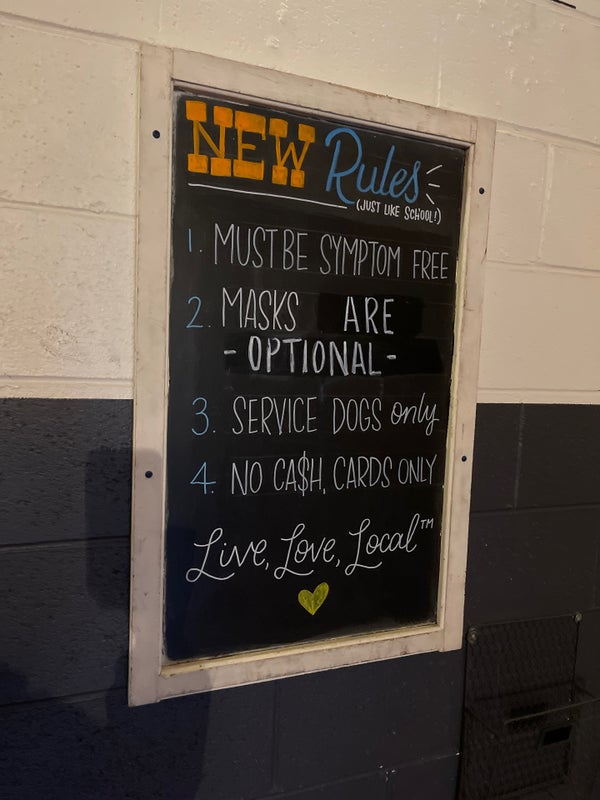 NEW Rules
(JUST LIKE SCHOOL!)
1. MUST BE SYMPTOM FREE
2. MASKS ARE
- OPTIONAL -
3. SERVICE DOGS only
4. NO CA$H, CARDS ONLY
Live, Love, Local™